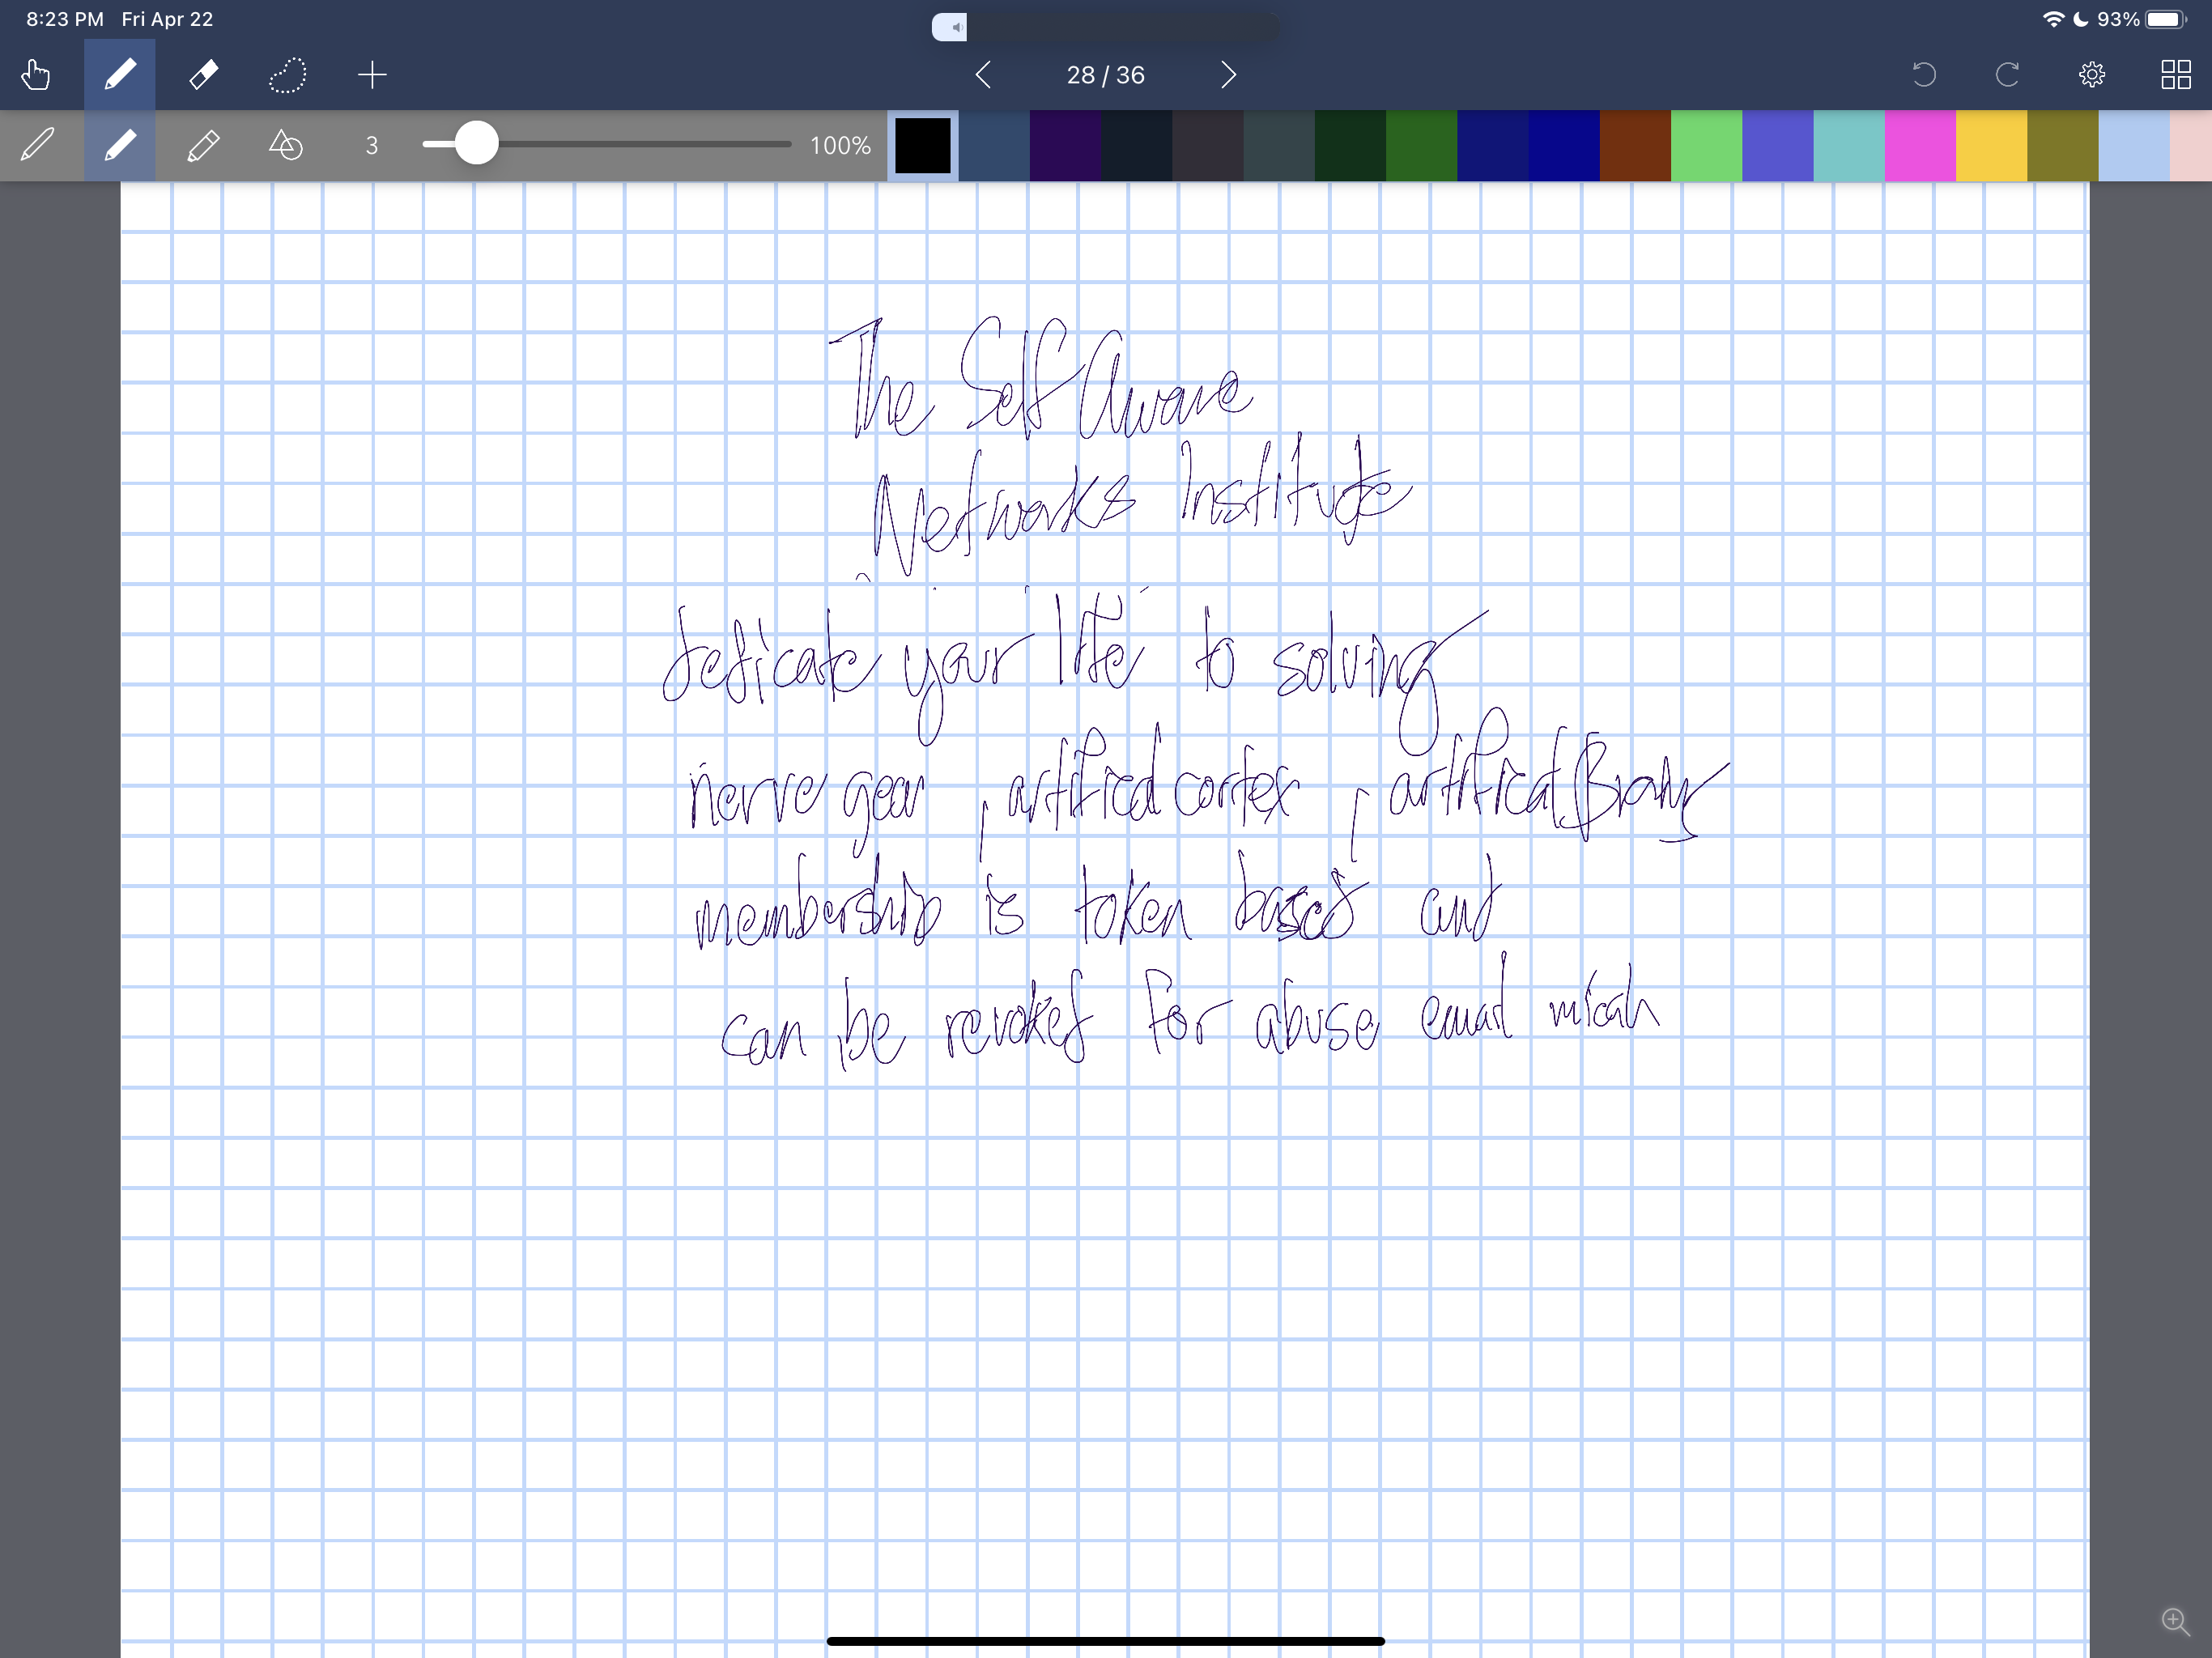 8:23 PM Fri Apr 22
93%
28 / 36
3
100%
The Self Aware
Networks Institute
dedicate your life to solving
nerve gear, artificial cortex, artificial Brains
membership is token based and
can be revoked for abuse email micah